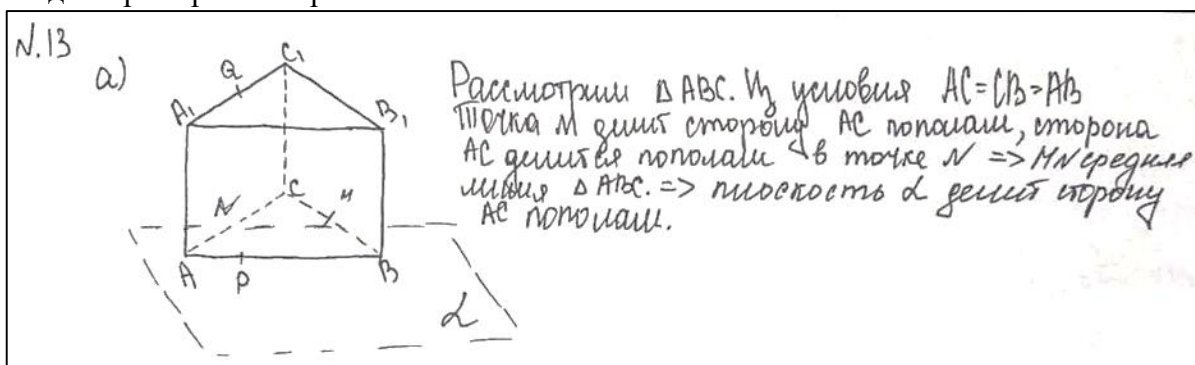 N.13
а)
Q
C₁
A₁
B₁
N
C
M
A
P
B
α
Рассмотрим Δ ABC. Из условия AC=CB=AB
Точка M делит сторону AC пополам, сторона
AC делится пополам в точке N => MN средняя
линия Δ ABC. => плоскость α делит сторону
AC пополам.